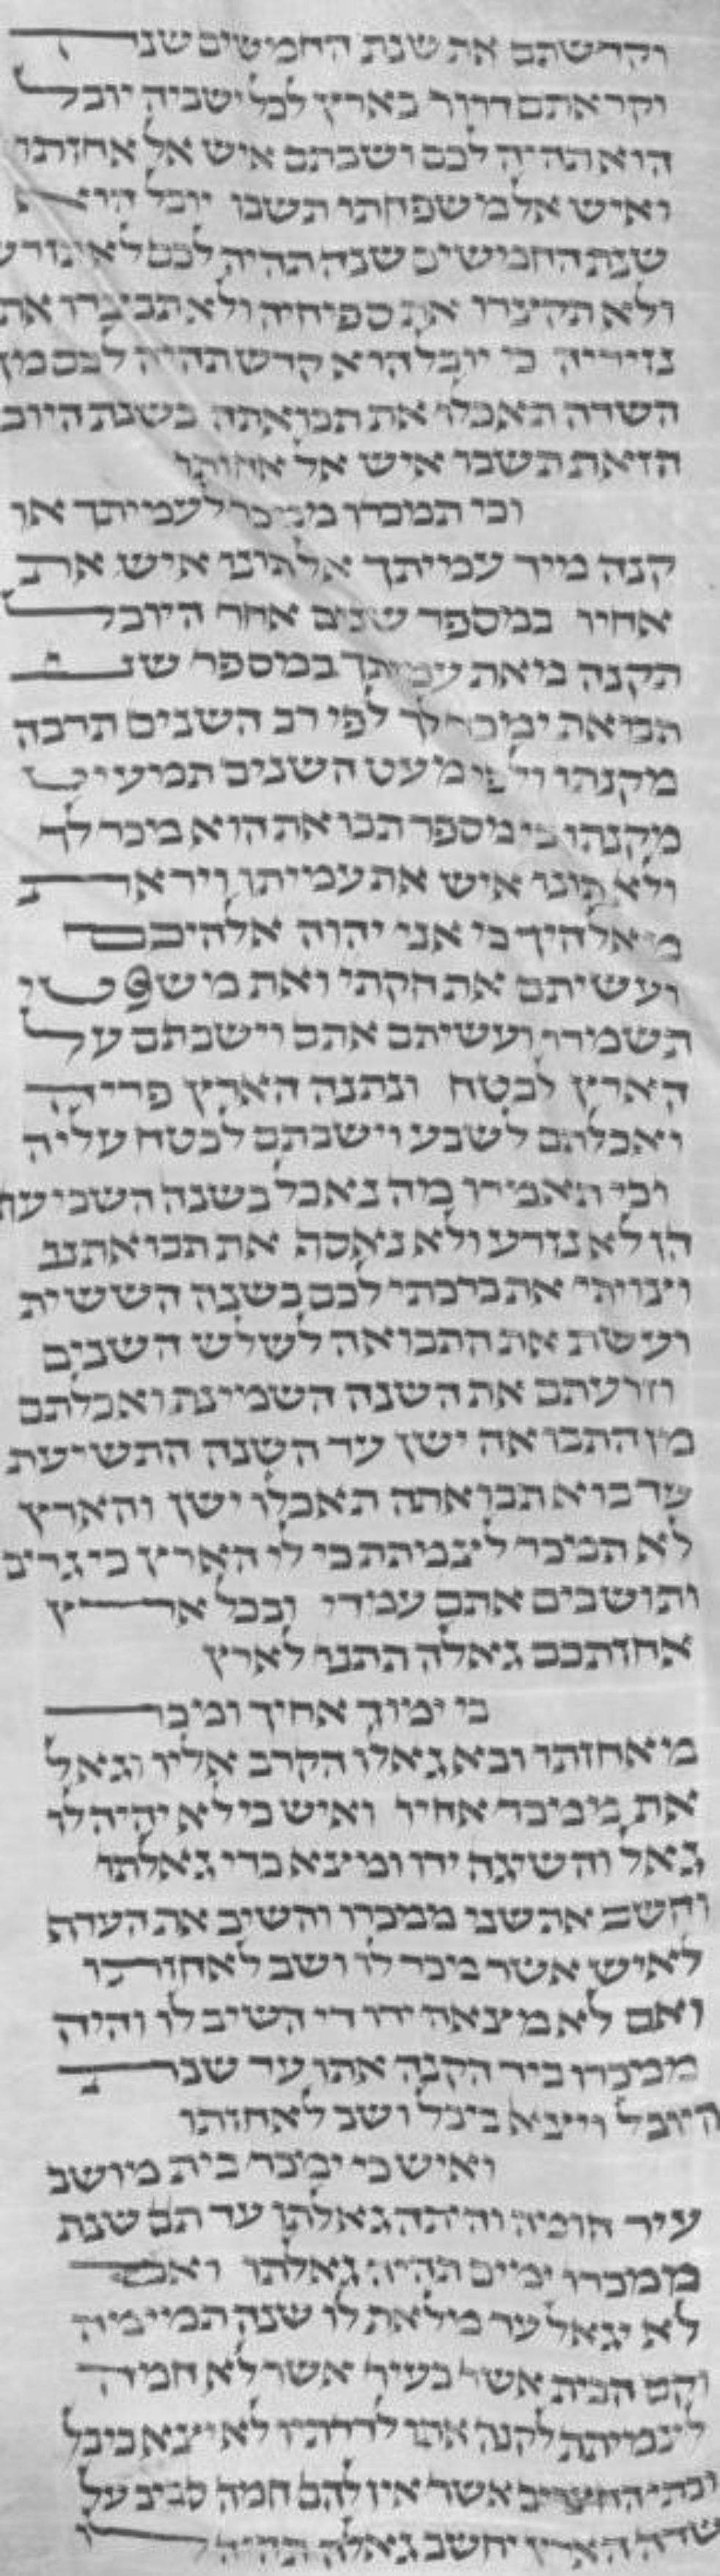 וקדשתם את שנת החמשים שנה
וקראתם דרור בארץ לכל ישביה יובל
הוא תהיה לכם ושבתם איש אל אחזתו
ואיש אל משפחתו תשבו יובל היא
שנת החמשים שנה תהיה לכם לא תזרעו
ולא תקצרו את ספיחיה ולא תבצרו את
נזיריה כי יובל הוא קדש תהיה לכם מן
השדה תאכלו את תבואתה בשנת היובל
הזאת תשבו איש אל אחזתו
וכי תמכרו ממכר לעמיתך או
קנה מיד עמיתך אל תונו איש את
אחיו במספר שנים אחר היובל
תקנה מאת עמיתך במספר שני
תבואת ימכר לך לפי רב השנים תרבה
מקנתו ולפי מעט השנים תמעיט
מקנתו כי מספר תבואת הוא מכר לך
ולא תונו איש את עמיתו ויראת
מאלהיך כי אני יהוה אלהיכם
ועשיתם את חקתי ואת משפטי
תשמרו ועשיתם אתם וישבתם על
הארץ לבטח ונתנה הארץ פריה
ואכלתם לשבע וישבתם לבטח עליה
וכי תאמרו מה נאכל בשנה השביעת
הן לא נזרע ולא נאסף את תבואתנו
וצויתי את ברכתי לכם בשנה הששית
ועשת את התבואה לשלש השנים
וזרעתם את השנה השמינת ואכלתם
מן התבואה ישן עד השנה התשיעת
עד בוא תבואתה תאכלו ישן והארץ
לא תמכר לצמתת כי לי הארץ כי גרים
ותושבים אתם עמדי ובכל ארץ
אחזתכם גאלה תתנו לארץ
כי ימוך אחיך ומכר
מאחזתו ובא גאלו הקרב אליו וגאל
את ממכר אחיו ואיש כי לא יהיה לו
גאל והשיגה ידו ומצא כדי גאלתו
וחשב את שני ממכרו והשיב את העדף
לאיש אשר מכר לו ושב לאחזתו
ואם לא מצאה ידו די השיב לו והיה
ממכרו ביד הקנה אתו עד שנת
היובל ויצא ביבל ושב לאחזתו
ואיש כי ימכר בית מושב
עיר חומה והיתה גאלתו עד תם שנת
ממכרו ימים תהיה גאלתו ואם
לא יגאל עד מלאת לו שנה תמימה
וקם הבית אשר בעיר אשר לא חמה
לצמיתת לקנה אתו לדרתיו לא יצא ביבל
ובתי החצרים אשר אין להם חמה סביב על
שדה הארץ יחשב גאלה תהיה לו